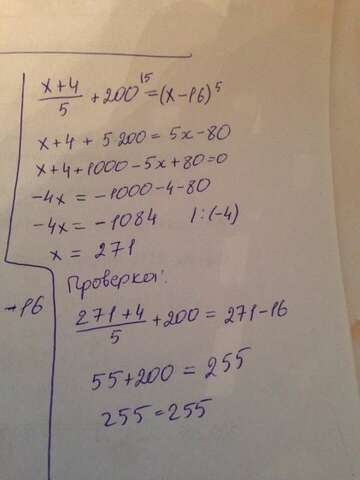 x+4/5 + 200^15 = (x-16)^5
x+4 + 5·200 = 5x-80
x+4+1000-5x+80=0
-4x = -1000-4-80
-4x = -1084 |:(-4)
x = 271
Проверка:
-16
271+4/5 + 200 = 271-16
55+200 = 255
255=255